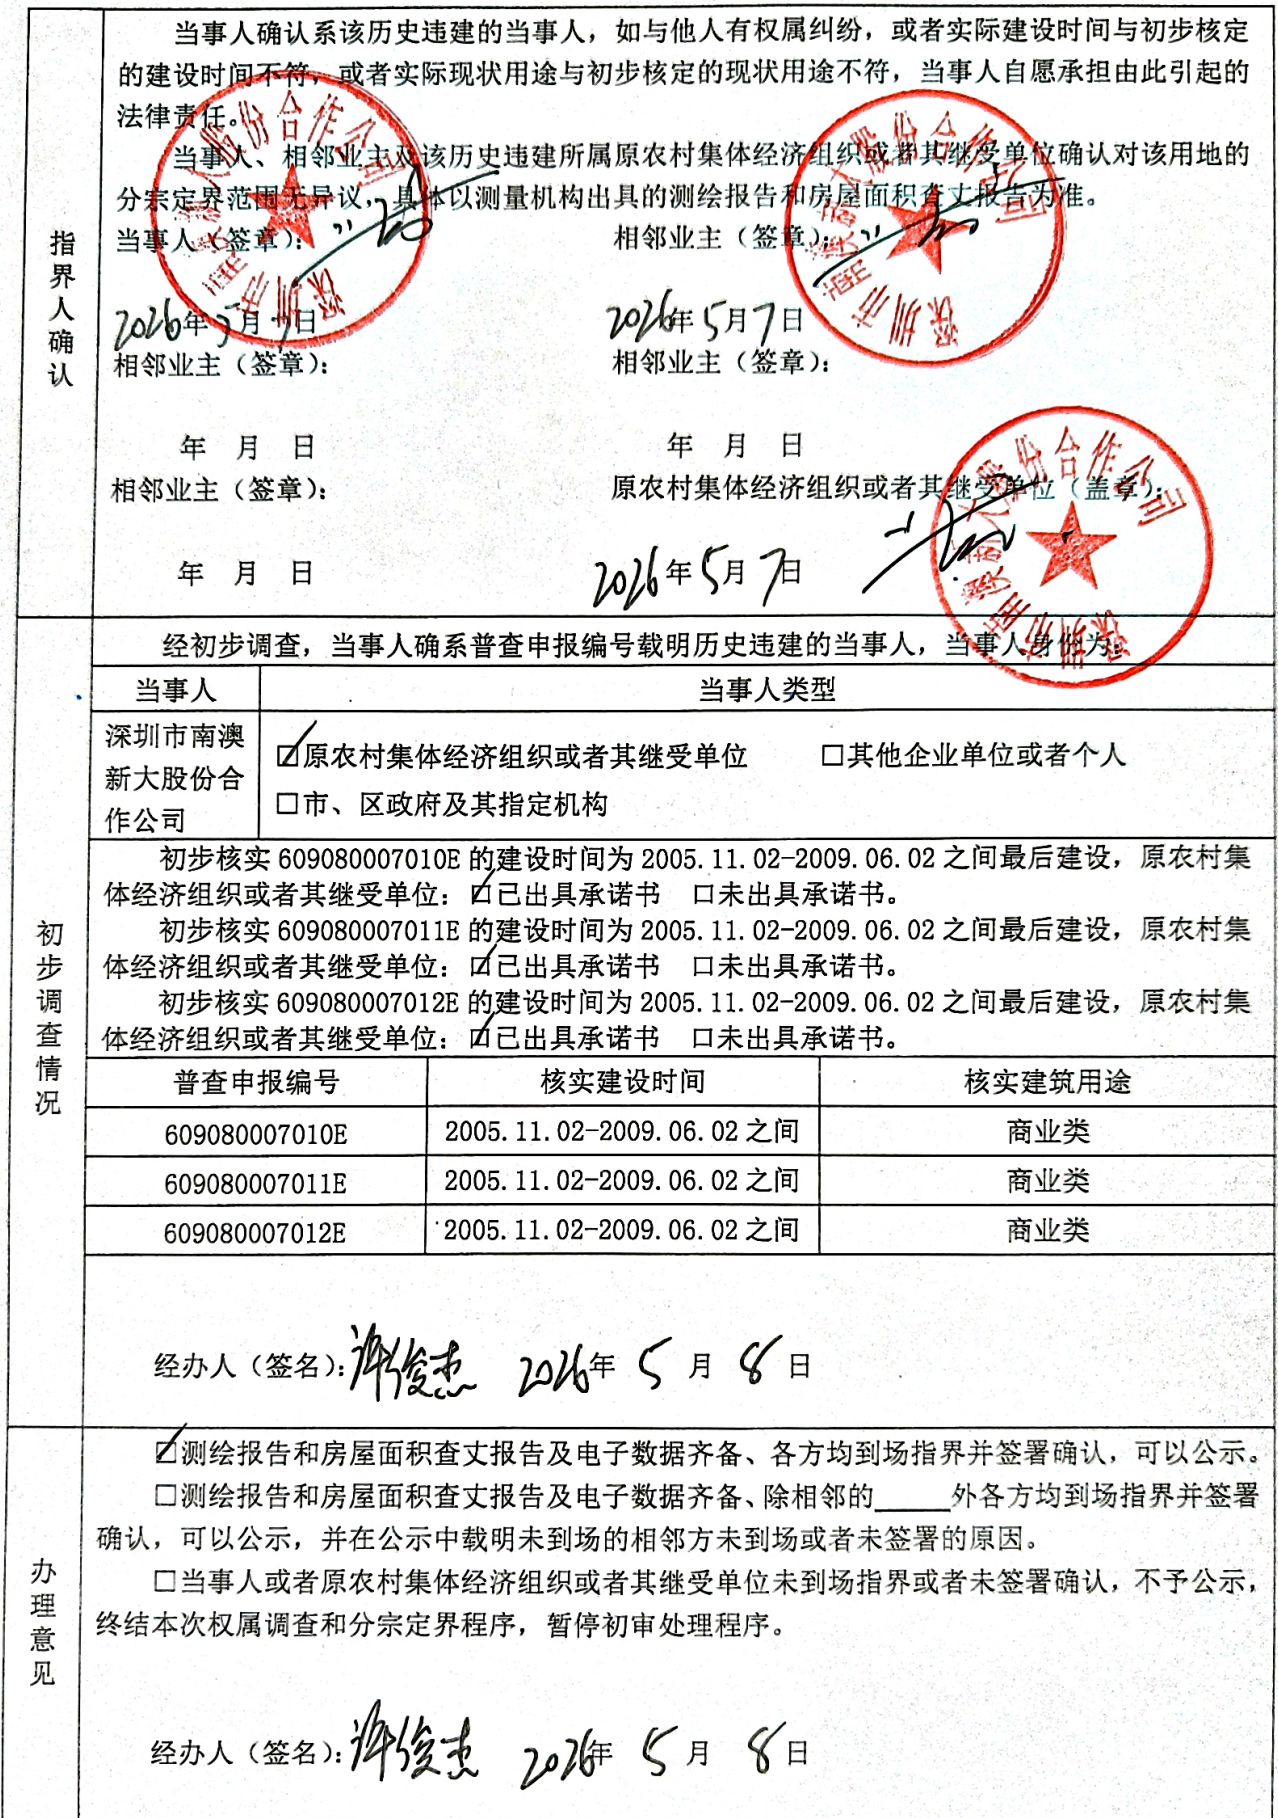 指界人确认
当事人确认系该历史违建的当事人，如与他人有权属纠纷，或者实际建设时间与初步核定
的建设时间不符，或者实际现状用途与初步核定的现状用途不符，当事人自愿承担由此引起的
法律责任。
当事人、相邻业主及该历史违建所属原农村集体经济组织或者其继受单位确认对该用地的
分宗定界范围无异议，具体以测量机构出具的测绘报告和房屋面积查丈报告为准。
当事人（签章）： 相邻业主（签章）：
深圳市南澳新大股份合作公司 深圳市南澳新大股份合作公司
2026年5月7日 2026年5月7日
相邻业主（签章）： 相邻业主（签章）：
年 月 日 年 月 日
相邻业主（签章）： 原农村集体经济组织或者其继受单位（盖章）：
深圳市南澳新大股份合作公司
年 月 日 2026年5月7日
初步调查情况
经初步调查，当事人确系普查申报编号载明历史违建的当事人，当事人身份为：
当事人 当事人类型
深圳市南澳
新大股份合
作公司
☑原农村集体经济组织或者其继受单位 □其他企业单位或者个人
□市、区政府及其指定机构
初步核实 609080007010E 的建设时间为 2005.11.02-2009.06.02 之间最后建设，原农村集
体经济组织或者其继受单位：☑已出具承诺书 □未出具承诺书。
初步核实 609080007011E 的建设时间为 2005.11.02-2009.06.02 之间最后建设，原农村集
体经济组织或者其继受单位：☑已出具承诺书 □未出具承诺书。
初步核实 609080007012E 的建设时间为 2005.11.02-2009.06.02 之间最后建设，原农村集
体经济组织或者其继受单位：☑已出具承诺书 □未出具承诺书。
普查申报编号 核实建设时间 核实建筑用途
609080007010E 2005.11.02-2009.06.02 之间 商业类
609080007011E 2005.11.02-2009.06.02 之间 商业类
609080007012E 2005.11.02-2009.06.02 之间 商业类
经办人（签名）：许俊杰 2026年 5 月 8 日
办理意见
☑测绘报告和房屋面积查丈报告及电子数据齐备、各方均到场指界并签署确认，可以公示。
□测绘报告和房屋面积查丈报告及电子数据齐备、除相邻的_____外各方均到场指界并签署
确认，可以公示，并在公示中载明未到场的相邻方未到场或者未签署的原因。
□当事人或者原农村集体经济组织或者其继受单位未到场指界或者未签署确认，不予公示，
终结本次权属调查和分宗定界程序，暂停初审处理程序。
经办人（签名）：许俊杰 2026年 5 月 8 日